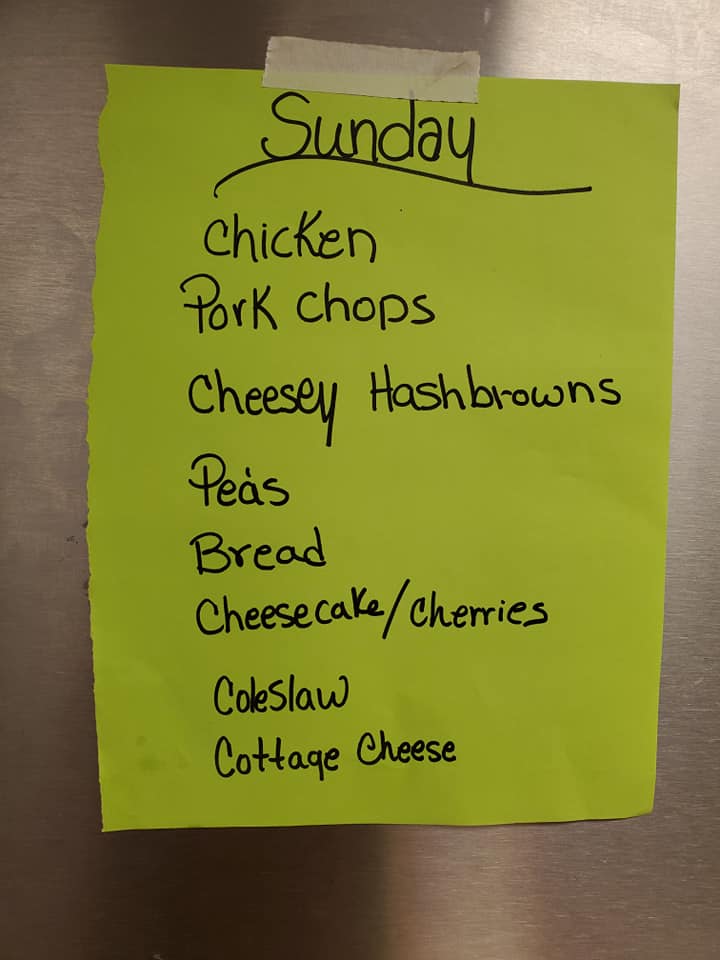 Sunday
Chicken
Pork Chops
Cheesey Hashbrowns
Peas
Bread
Cheesecake/Cherries
Coleslaw
Cottage Cheese